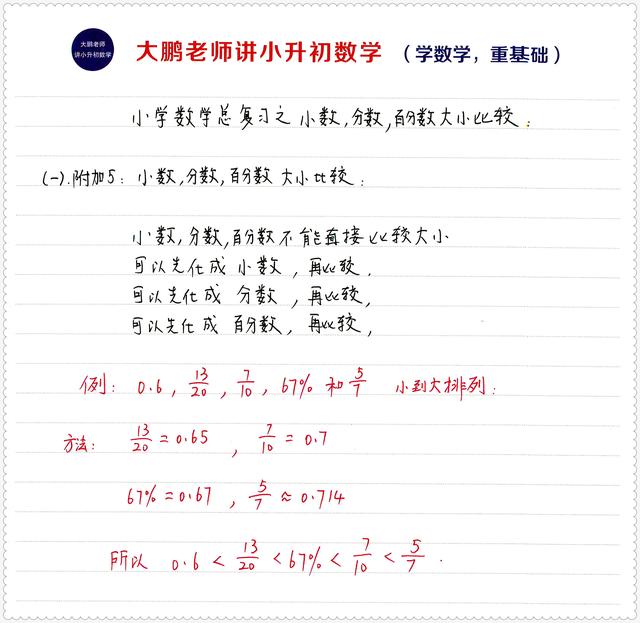 大鹏老师
讲小升初数学
大鹏老师讲小升初数学 (学数学，重基础)
小学数学总复习之 小数,分数,百分数大小比较:
(一).附加5: 小数,分数,百分数 大小比较:
小数,分数,百分数不能直接比较大小
可以先化成 小数, 再比较,
可以先化成 分数, 再比较,
可以先化成 百分数, 再比较,
例: 0.6, 13/20, 7/10, 67% 和 5/7 小到大排列:
方法: 13/20 = 0.65 , 7/10 = 0.7
67% = 0.67 , 5/7 ≈ 0.714
所以 0.6 < 13/20 < 67% < 7/10 < 5/7 .